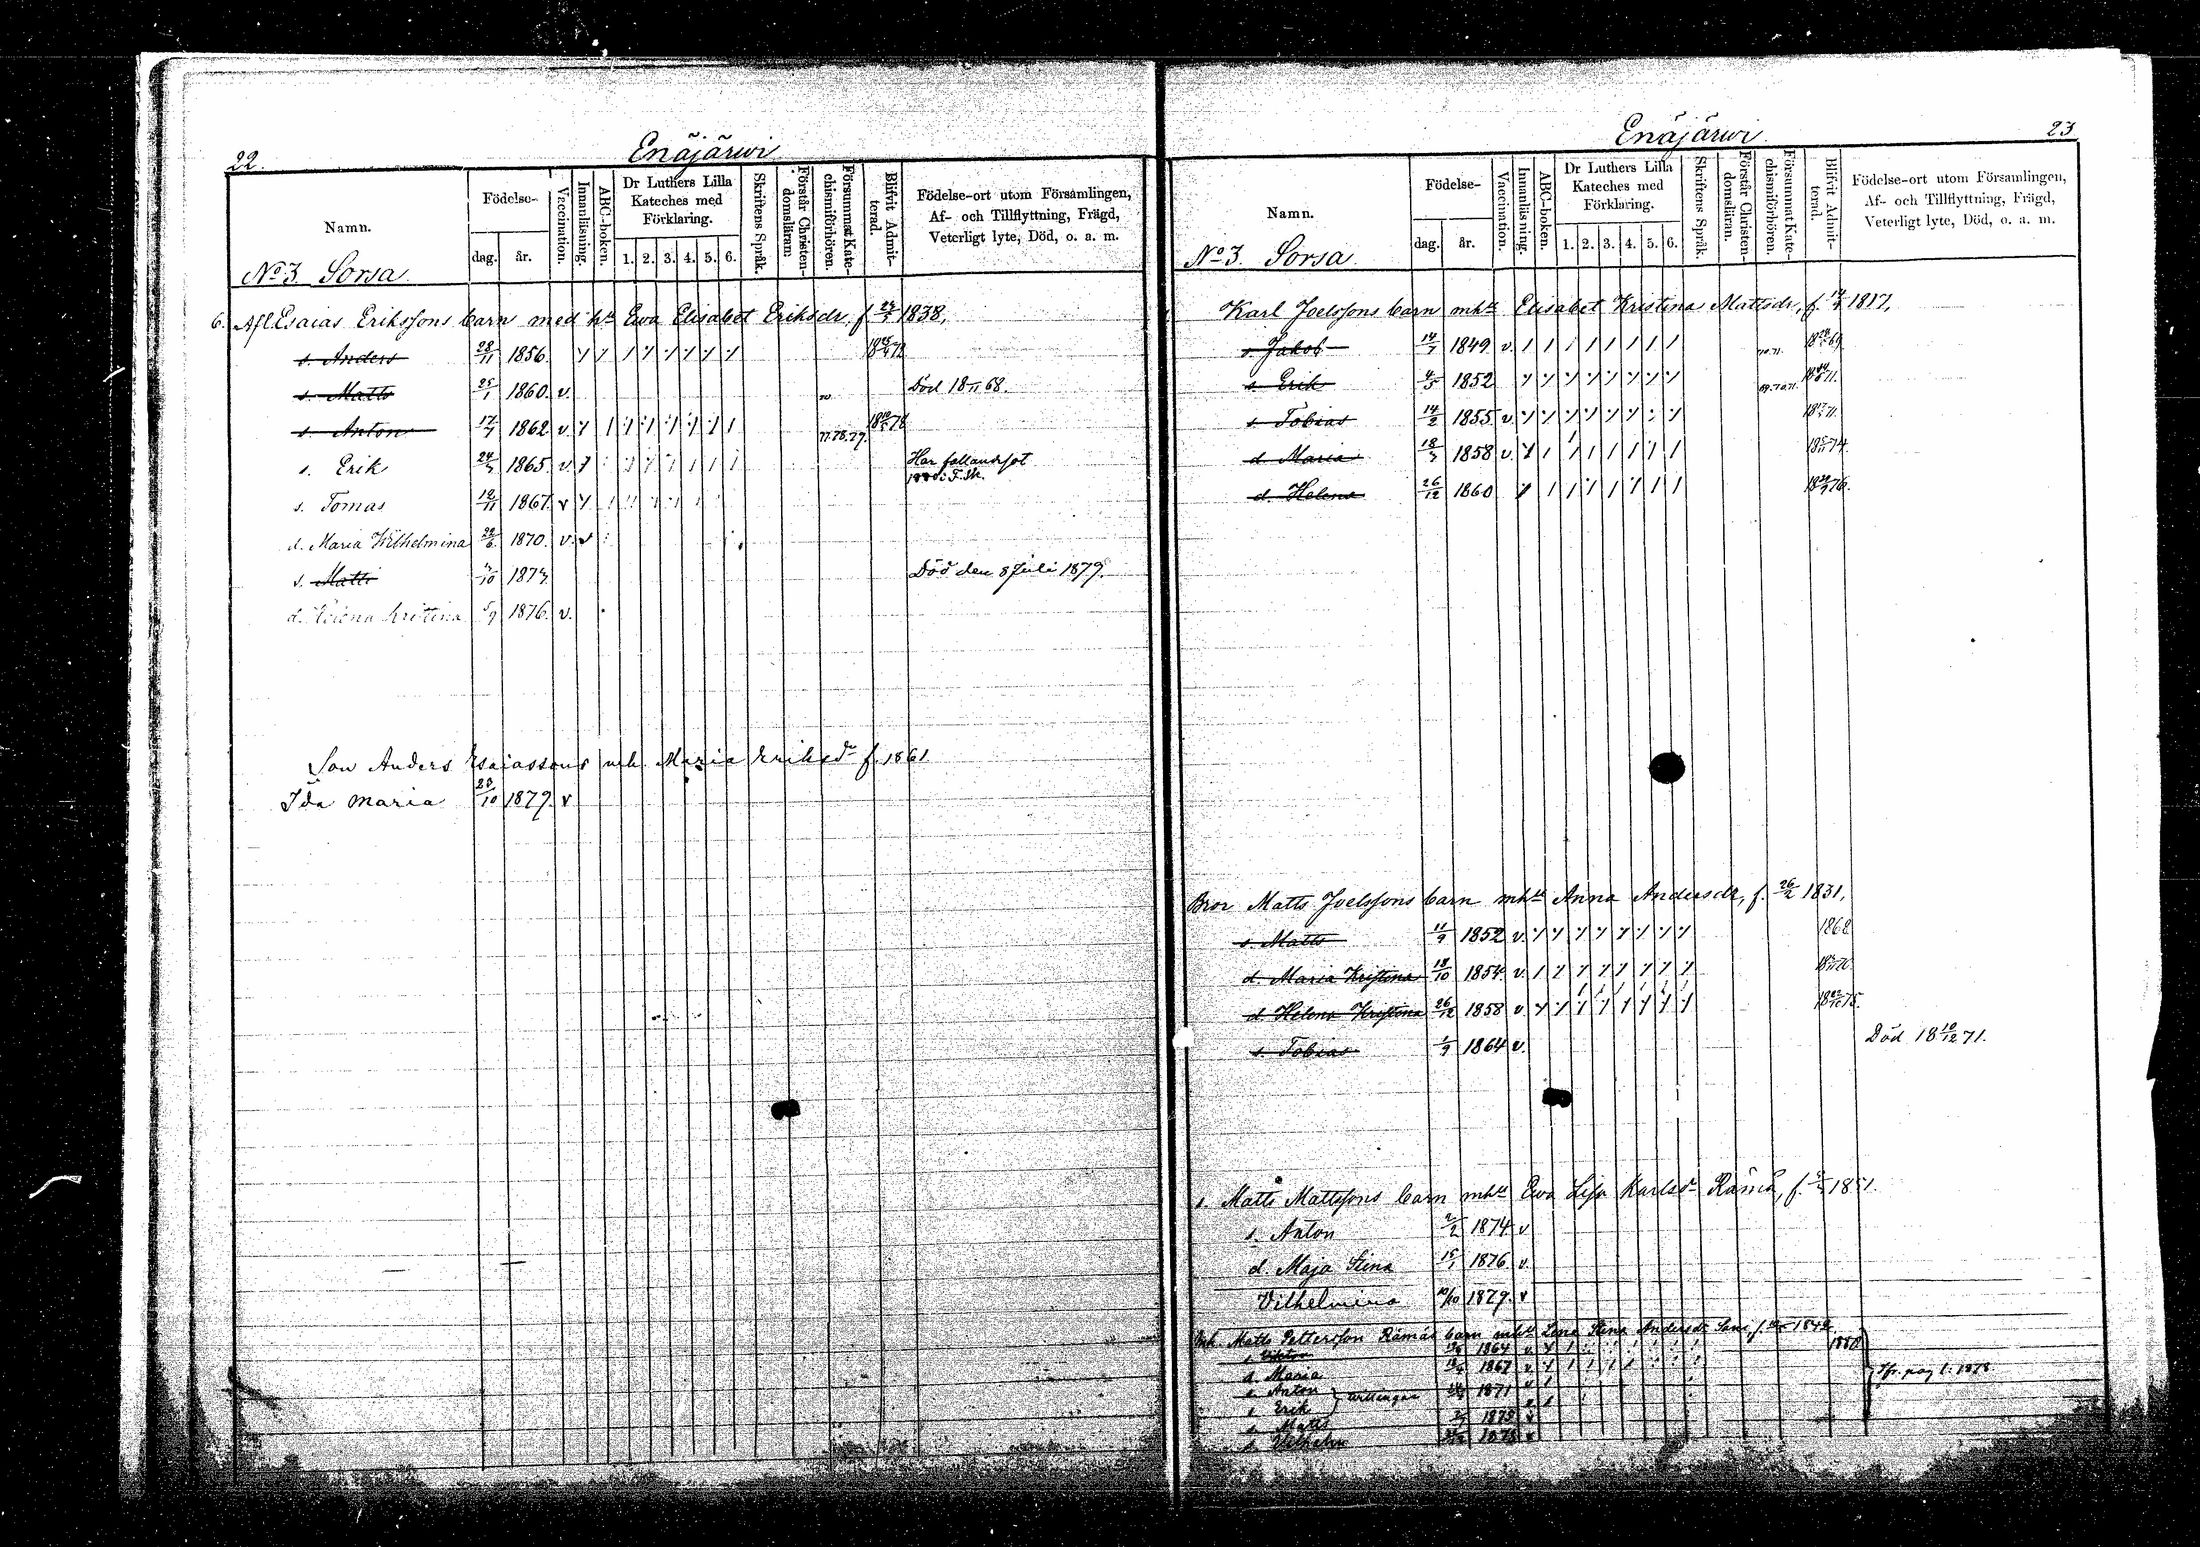 22.
Enäjärwi
Namn.
Födelse-
dag.
år.
Vaccination.
Innanläsning.
ABC-boken.
Dr Luthers Lilla
Kateches med
Förklaring.
1. 2. 3. 4. 5. 6.
Skriftens Språk.
Förstår Christen-
domsläran:
Försummat Kate-
chismiförhören.
Blifvit Admit-
terad.
Födelse-ort utom Församlingen,
Af- och Tillflyttning, Frägd,
Veterligt lyte, Död, o. a. m.
No 3. Sorsa.
6. Afl. Esaias Erikssons barn med hu Ewa Elisabet Eriksdr, f. 1838,
s. Anders 28/11 1856.
s. Matts 25/1 1860. v. Död 18 11 68.
s. Anton 17/7 1862 v. 77.78.79.
s. Erik 24/3 1865. v. Har fallandsot
1880 i F. Sk.
s. Tomas 12/11 1867. v
d. Maria Wilhelmina 22/6 1870. v. v
s. Matti 1873. Död den 8 Juli 1879.
d. Helena Kristina 5/9 1876. v.
Son Anders Esaiassons mh. Maria Eriksdr f. 1861
Ida Maria 23/10 1879. v
Enäjärwi
23
Namn.
Födelse-
dag.
år.
Vaccination.
Innanläsning.
ABC-boken.
Dr Luthers Lilla
Kateches med
Förklaring.
1. 2. 3. 4. 5. 6.
Skriftens Språk.
Förstår Christen-
domsläran.
Försummat Kate-
chismiförhören.
Blifvit Admit-
terad.
Födelse-ort utom Församlingen,
Af- och Tillflyttning, Frägd,
Veterligt lyte, Död, o. a. m.
No 3. Sorsa.
Karl Joelssons barn mhu Elisabet Kristina Mattsdr, f. 1817,
s. Jakob 14/7 1849 v. 70.71.
s. Erik 4/5 1852 69.70.71.
s. Tobias 14/2 1855 v.
d. Maria 18/3 1858 v.
d. Helena 26/12 1860
Bror Matts Joelssons barn mhu Anna Andersdr, f. 26/2 1831,
s. Matts 11/9 1852 v. 1868
d. Maria Kristina 18/10 1854. v.
d. Helena Kristina 26/12 1858 v
s. Tobias 1/9 1864 v. Död 18 10/12 71.
s. Matts Mattssons barn mhu Ewa Lisa Karlsdr Rämä, f. 1851.
s. Anton 2/2 1874 v
d. Maja Stina 15/1 1876. v.
Vilhelmina 10/10 1879. v
Matts Pettersson Rämäs barn mhu Lena Stina Andersdr f. 1842
s. Viktor 1864 v. 1880
d. Maria 1867 v.
s. Anton 1871 v
s. Erik
s. Matts 1875 v
s. Vilhelm 1878 v